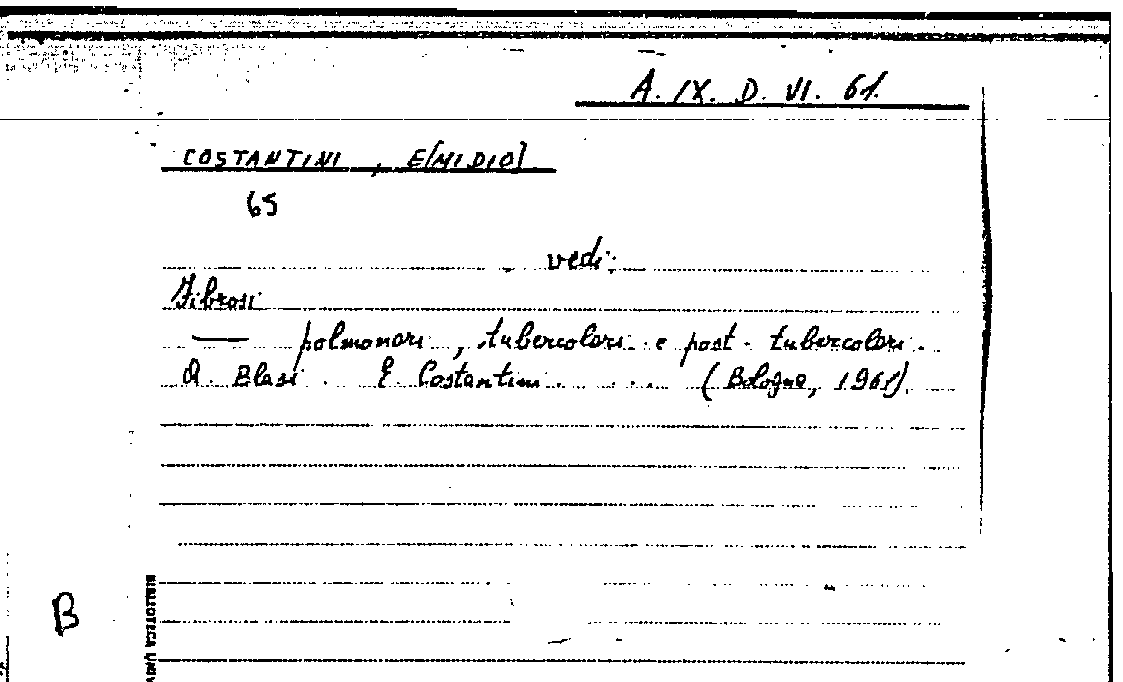 A. IX. D. VI. 61.
COSTANTINI, E[MIDIO]
65
vedi:
Fibrosi
— polmonari, tubercolari e post-tubercolari.
A. Blasi. E. Costantini. ... (Bologna, 1961).
B
BIBLIOTECA UNIV